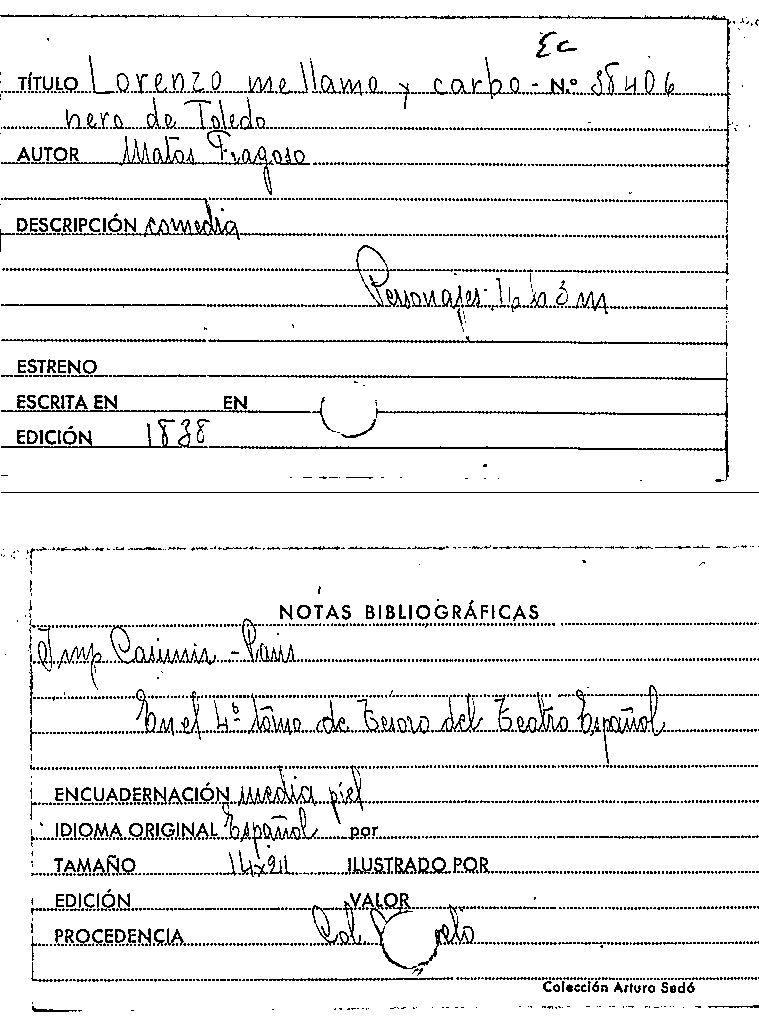 Ec
TÍTULO Lorenzo me llamo y carbo- N.º 38406
nero de Toledo
AUTOR Matos Fragoso
DESCRIPCIÓN comedia
Personajes: 16 h 3 m
ESTRENO
ESCRITA EN EN
EDICIÓN 1838
NOTAS BIBLIOGRÁFICAS
Imp Casimir - Paris
En el 4º tomo de Tesoro del Teatro Español
ENCUADERNACIÓN media piel
IDIOMA ORIGINAL Español por
TAMAÑO 14x21 ILUSTRADO POR
EDICIÓN VALOR
PROCEDENCIA Col.
Colección Arturo Sedó